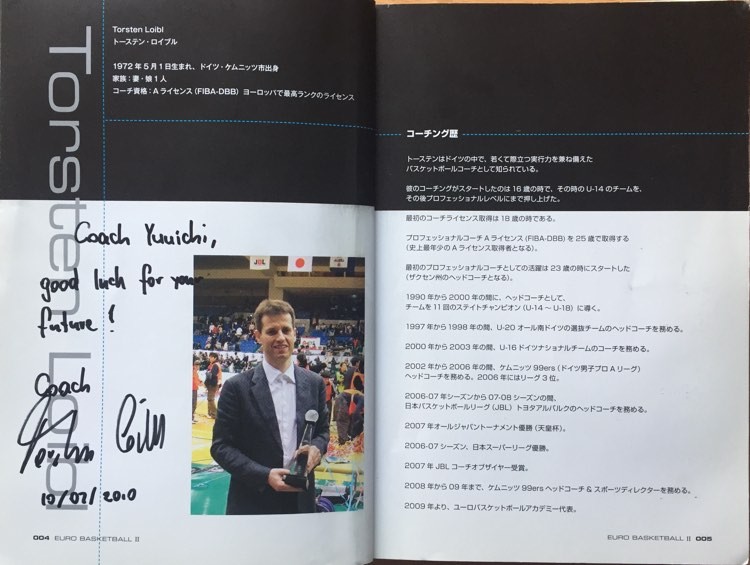 Torsten Loibl
Torsten Loibl
トーステン・ロイブル
1972年5月1日生まれ、ドイツ・ケムニッツ市出身
家族：妻・娘1人
コーチ資格：Aライセンス（FIBA-DBB） ヨーロッパで最高ランクのライセンス
Coach Yuuichi,
good luck for your
future!
Coach
10/02/2010
JBL
004 EURO BASKETBALL II
コーチング歴
トーステンはドイツの中で、若くて際立つ実行力を兼ね備えた
バスケットボールコーチとして知られている。
彼のコーチングがスタートしたのは16歳の時で、その時のU-14のチームを、
その後プロフェッショナルレベルにまで押し上げた。
最初のコーチライセンス取得は18歳の時である。
プロフェッショナルコーチAライセンス（FIBA-DBB）を25歳で取得する
（史上最年少のAライセンス取得者となる）。
最初のプロフェッショナルコーチとしての活躍は23歳の時にスタートした
（ザクセン州のヘッドコーチとなる）。
1990年から2000年の間に、ヘッドコーチとして、
チームを11回のステイトチャンピオン（U-14～U-18）に導く。
1997年から1998年の間、U-20オール南ドイツの選抜チームのヘッドコーチを務める。
2000年から2003年の間、U-16ドイツナショナルチームのコーチを務める。
2002年から2006年の間、ケムニッツ99ers（ドイツ男子プロAリーグ）
ヘッドコーチを務める。2006年にはリーグ3位。
2006-07年シーズンから07-08シーズンの間、
日本バスケットボールリーグ（JBL）トヨタアルバルクのヘッドコーチを務める。
2007年オールジャパントーナメント優勝（天皇杯）。
2006-07シーズン、日本スーパーリーグ優勝。
2007年JBLコーチオブザイヤー受賞。
2008年から09年まで、ケムニッツ99ersヘッドコーチ＆スポーツディレクターを務める。
2009年より、ユーロバスケットボールアカデミー代表。
EURO BASKETBALL II 005